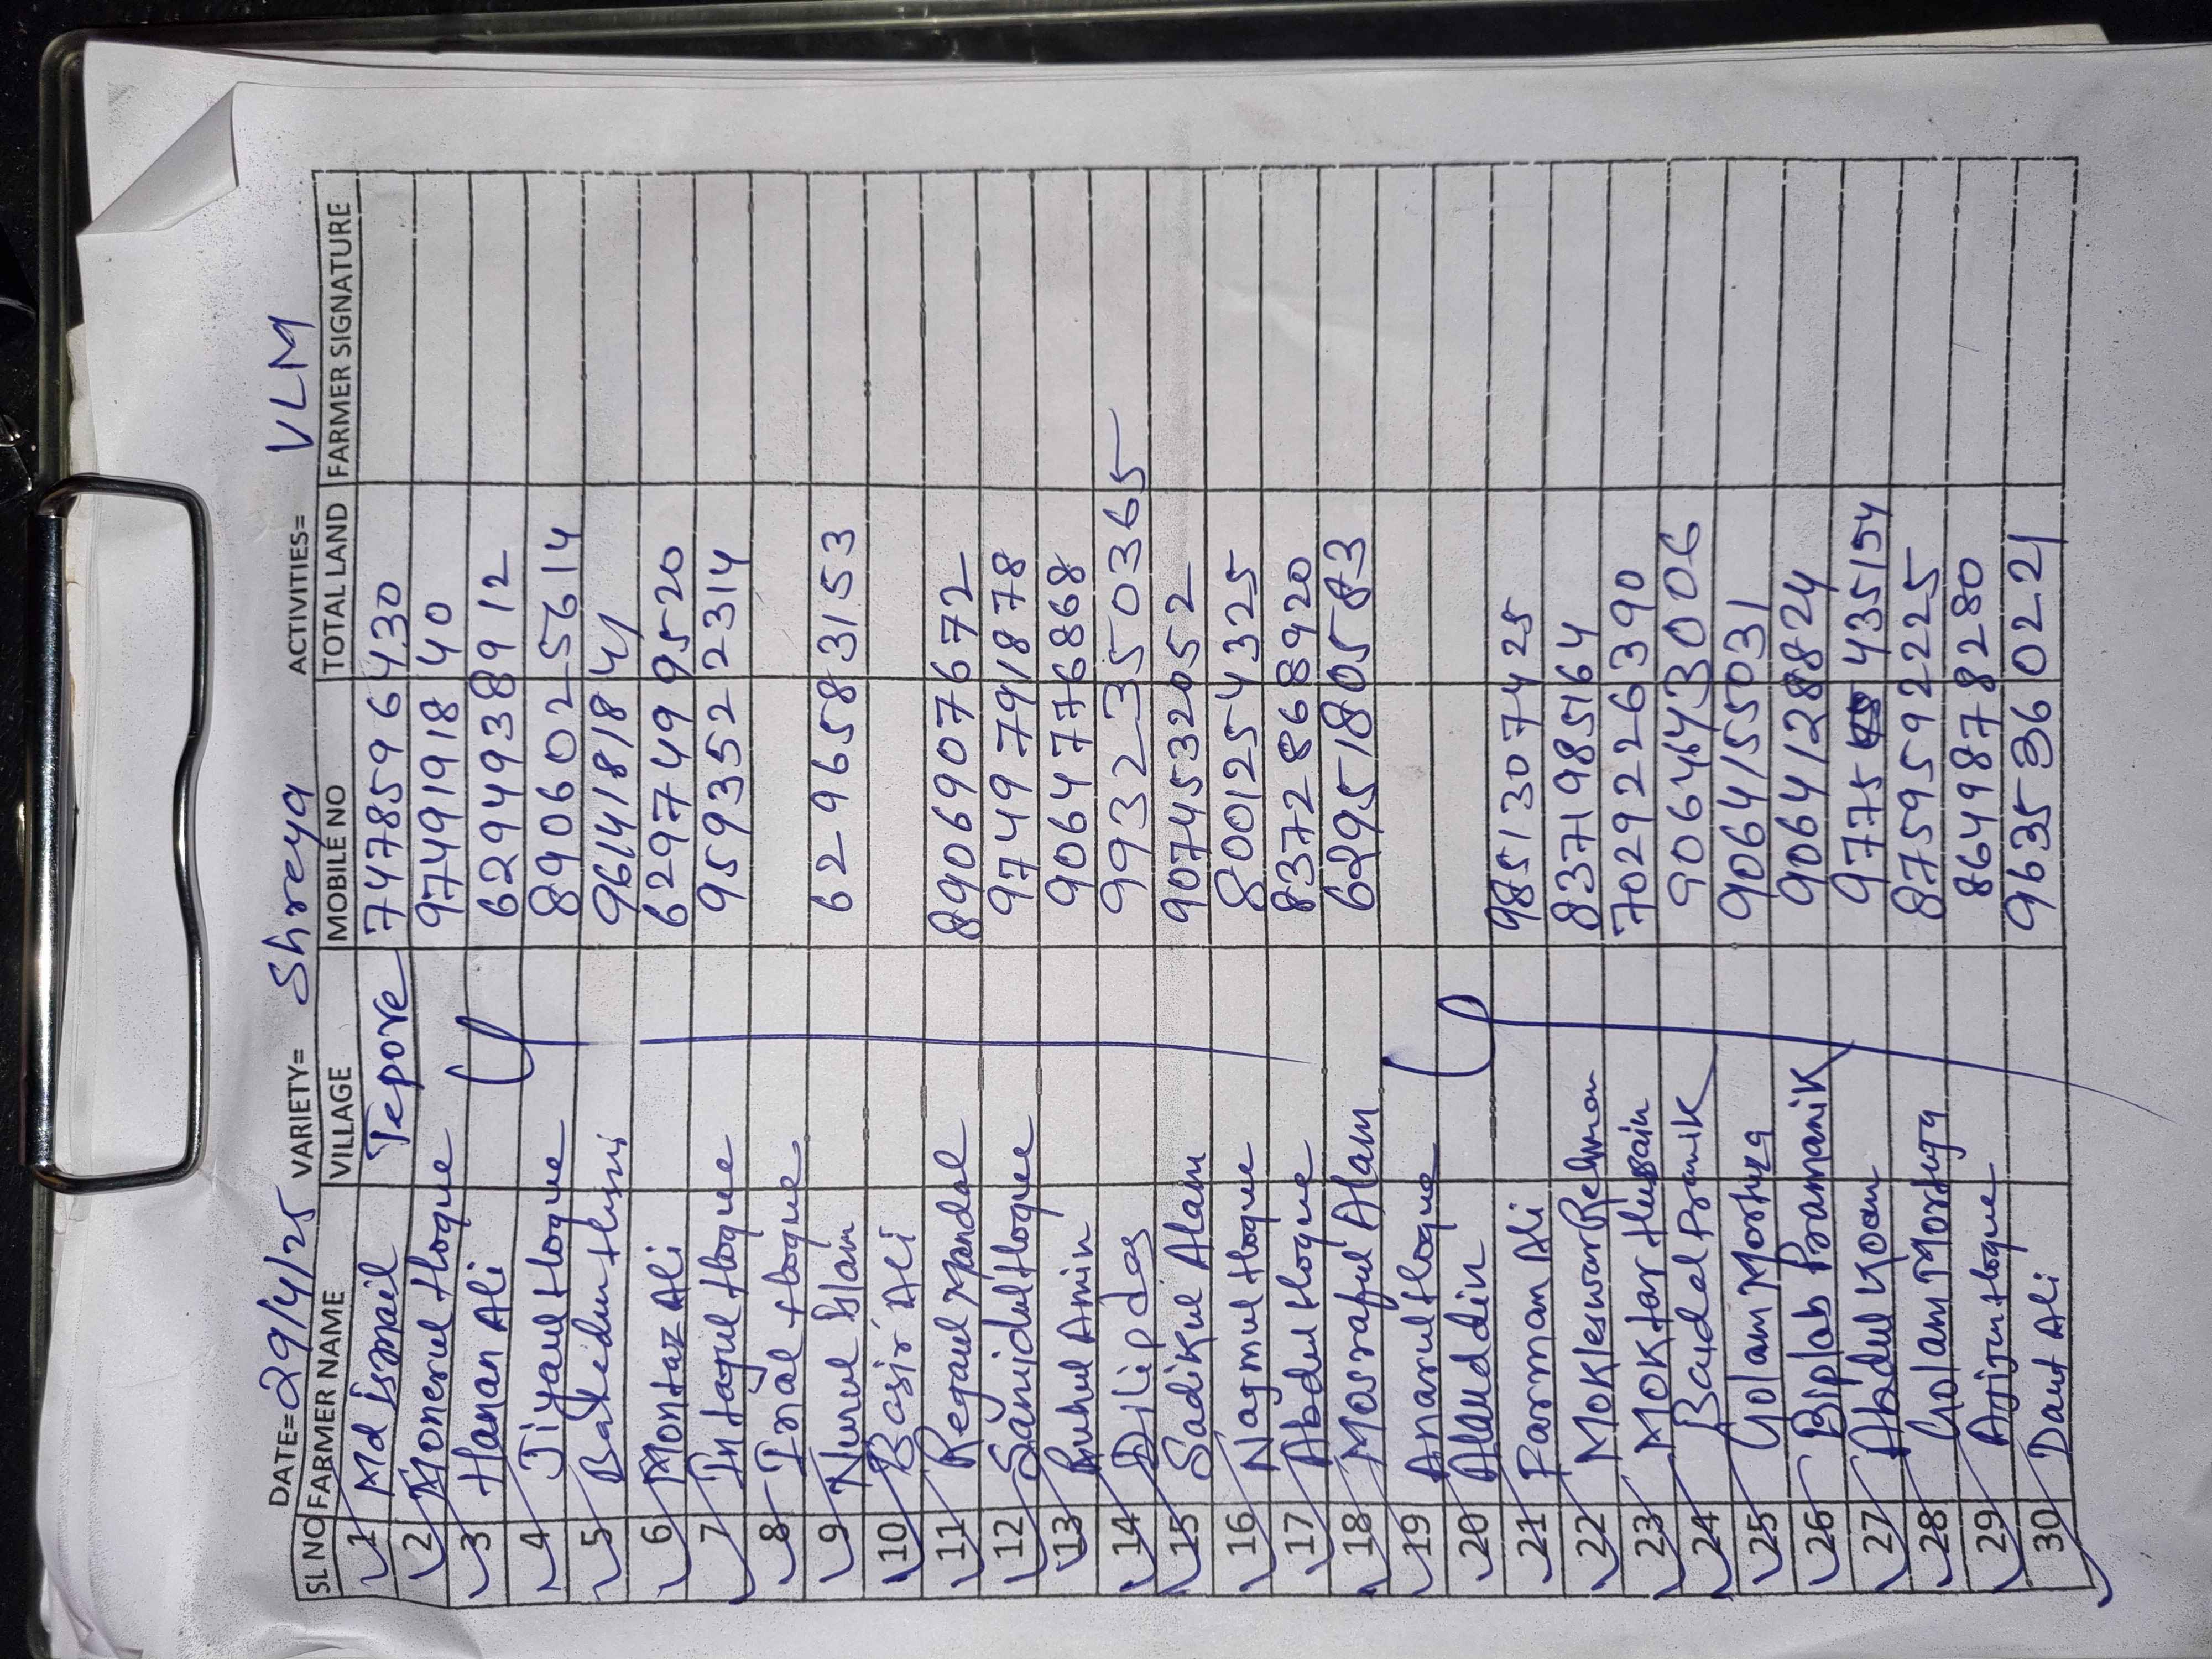 DATE= 29/4/25 VARIETY= Shreya ACTIVITIES= VLM
SL NO FARMER NAME VILLAGE MOBILE NO TOTAL LAND FARMER SIGNATURE
1 Md Ismail Tepore 7478596430
2 Monerul Hoque 9749191840
3 Hanan Ali 6294938912
4 Jiyaul Hoque 8906025614
5 9614181841
6 Montaz Ali 6297499520
7 Intajul Hoque 9593522314
8 Inal Hoque
9 Nurul Islam 6296583153
10 Basir Ali
11 Regaul Mandal 8906907672
12 Samidul Hoque 9749791878
13 Ruhul Amin 9064776868
14 Dilip das 9932350365
15 Sadikul Alam 9074532052
16 Nagmul Hoque 8001254325
17 Abdul Hoque 8372868920
18 Mosraful Alam 6295180583
19 Anarul Hoque
20 Alauddin
21 Parman Ali 9851307425
22 Mokleswur Rehman 8371985164
23 Moktar Hussain 7029226390
24 Badal Prамnik 9064643006
25 Golam Mortuza 9064155031
26 Biplab Pramanik 9064128824
27 Abdul 9775 435154
28 Golam Mortuja 8759592225
29 Arjun Hoque 8649878280
30 Daut Ali 9635360221